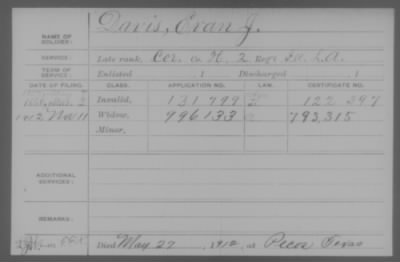 NAME OF SOLDIER: Davis, Evan J.
SERVICE: Late rank, Cor. Co. H, 2 Reg't Ia. L.A.
TERM OF SERVICE: Enlisted , 1 Discharged , 1
DATE OF FILING. CLASS. APPLICATION NO. LAW. CERTIFICATE NO.
Invalid, 131 799 122 397
1912 Widow, 996133 793,315
Minor,
ADDITIONAL SERVICES:
REMARKS:
Died May 27, 1912, at Pecos Texas